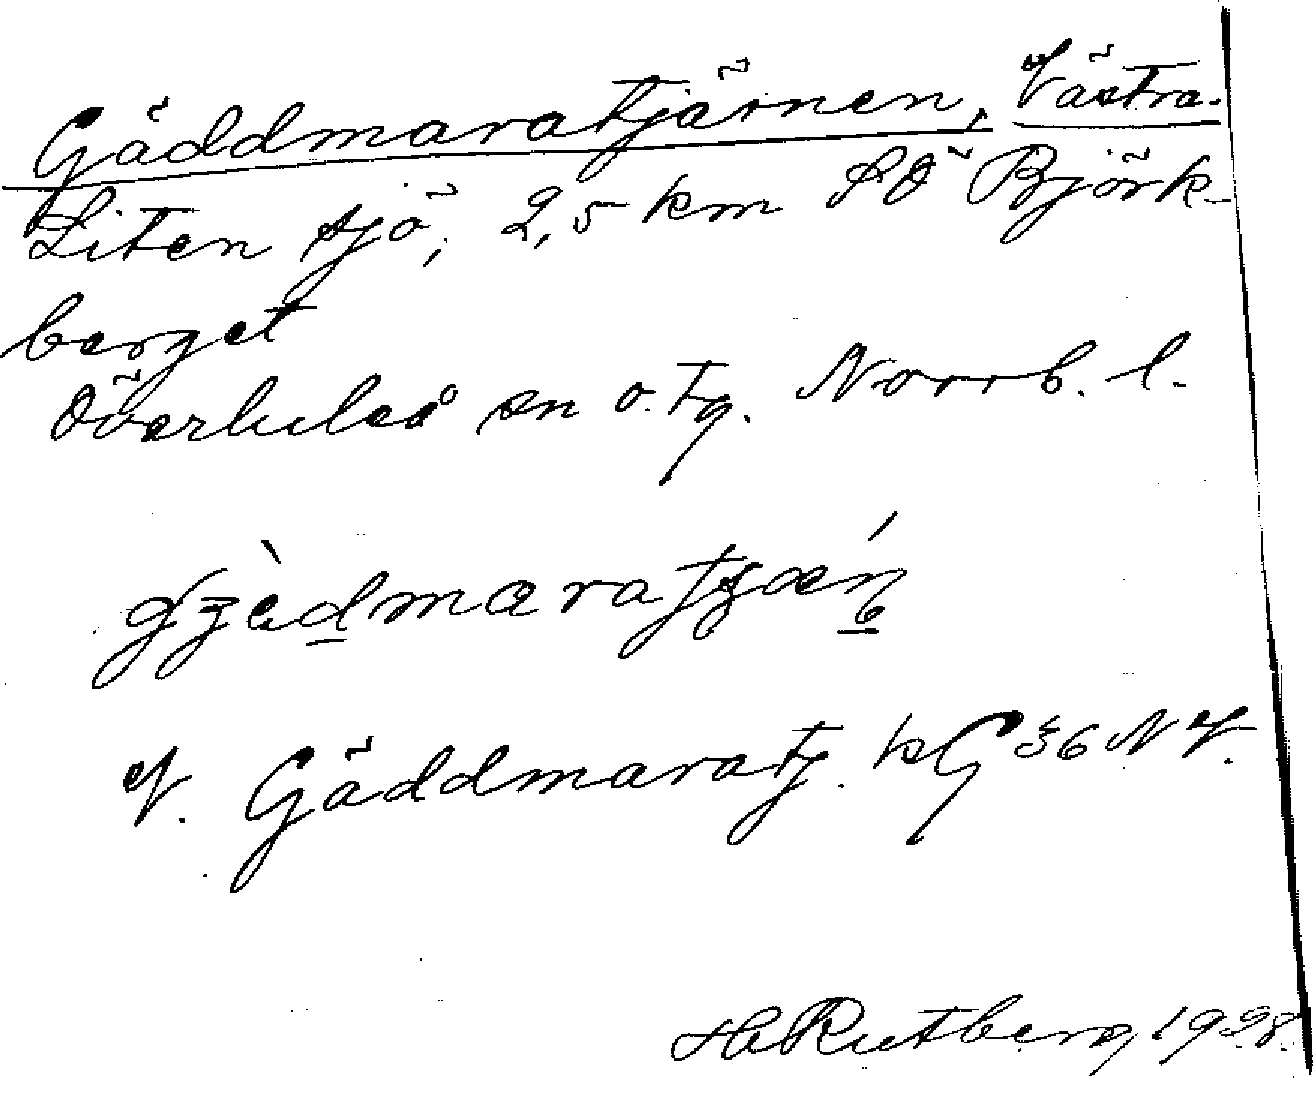 Gäddmaratjärnen, Västra.
Liten sjö, 2,5 km SÖ Björk-
berget
Överluleå sn o. tg. Norrb. l.
V. Gäddmaratj. kG 36 NV.
H Rutberg, 1928.